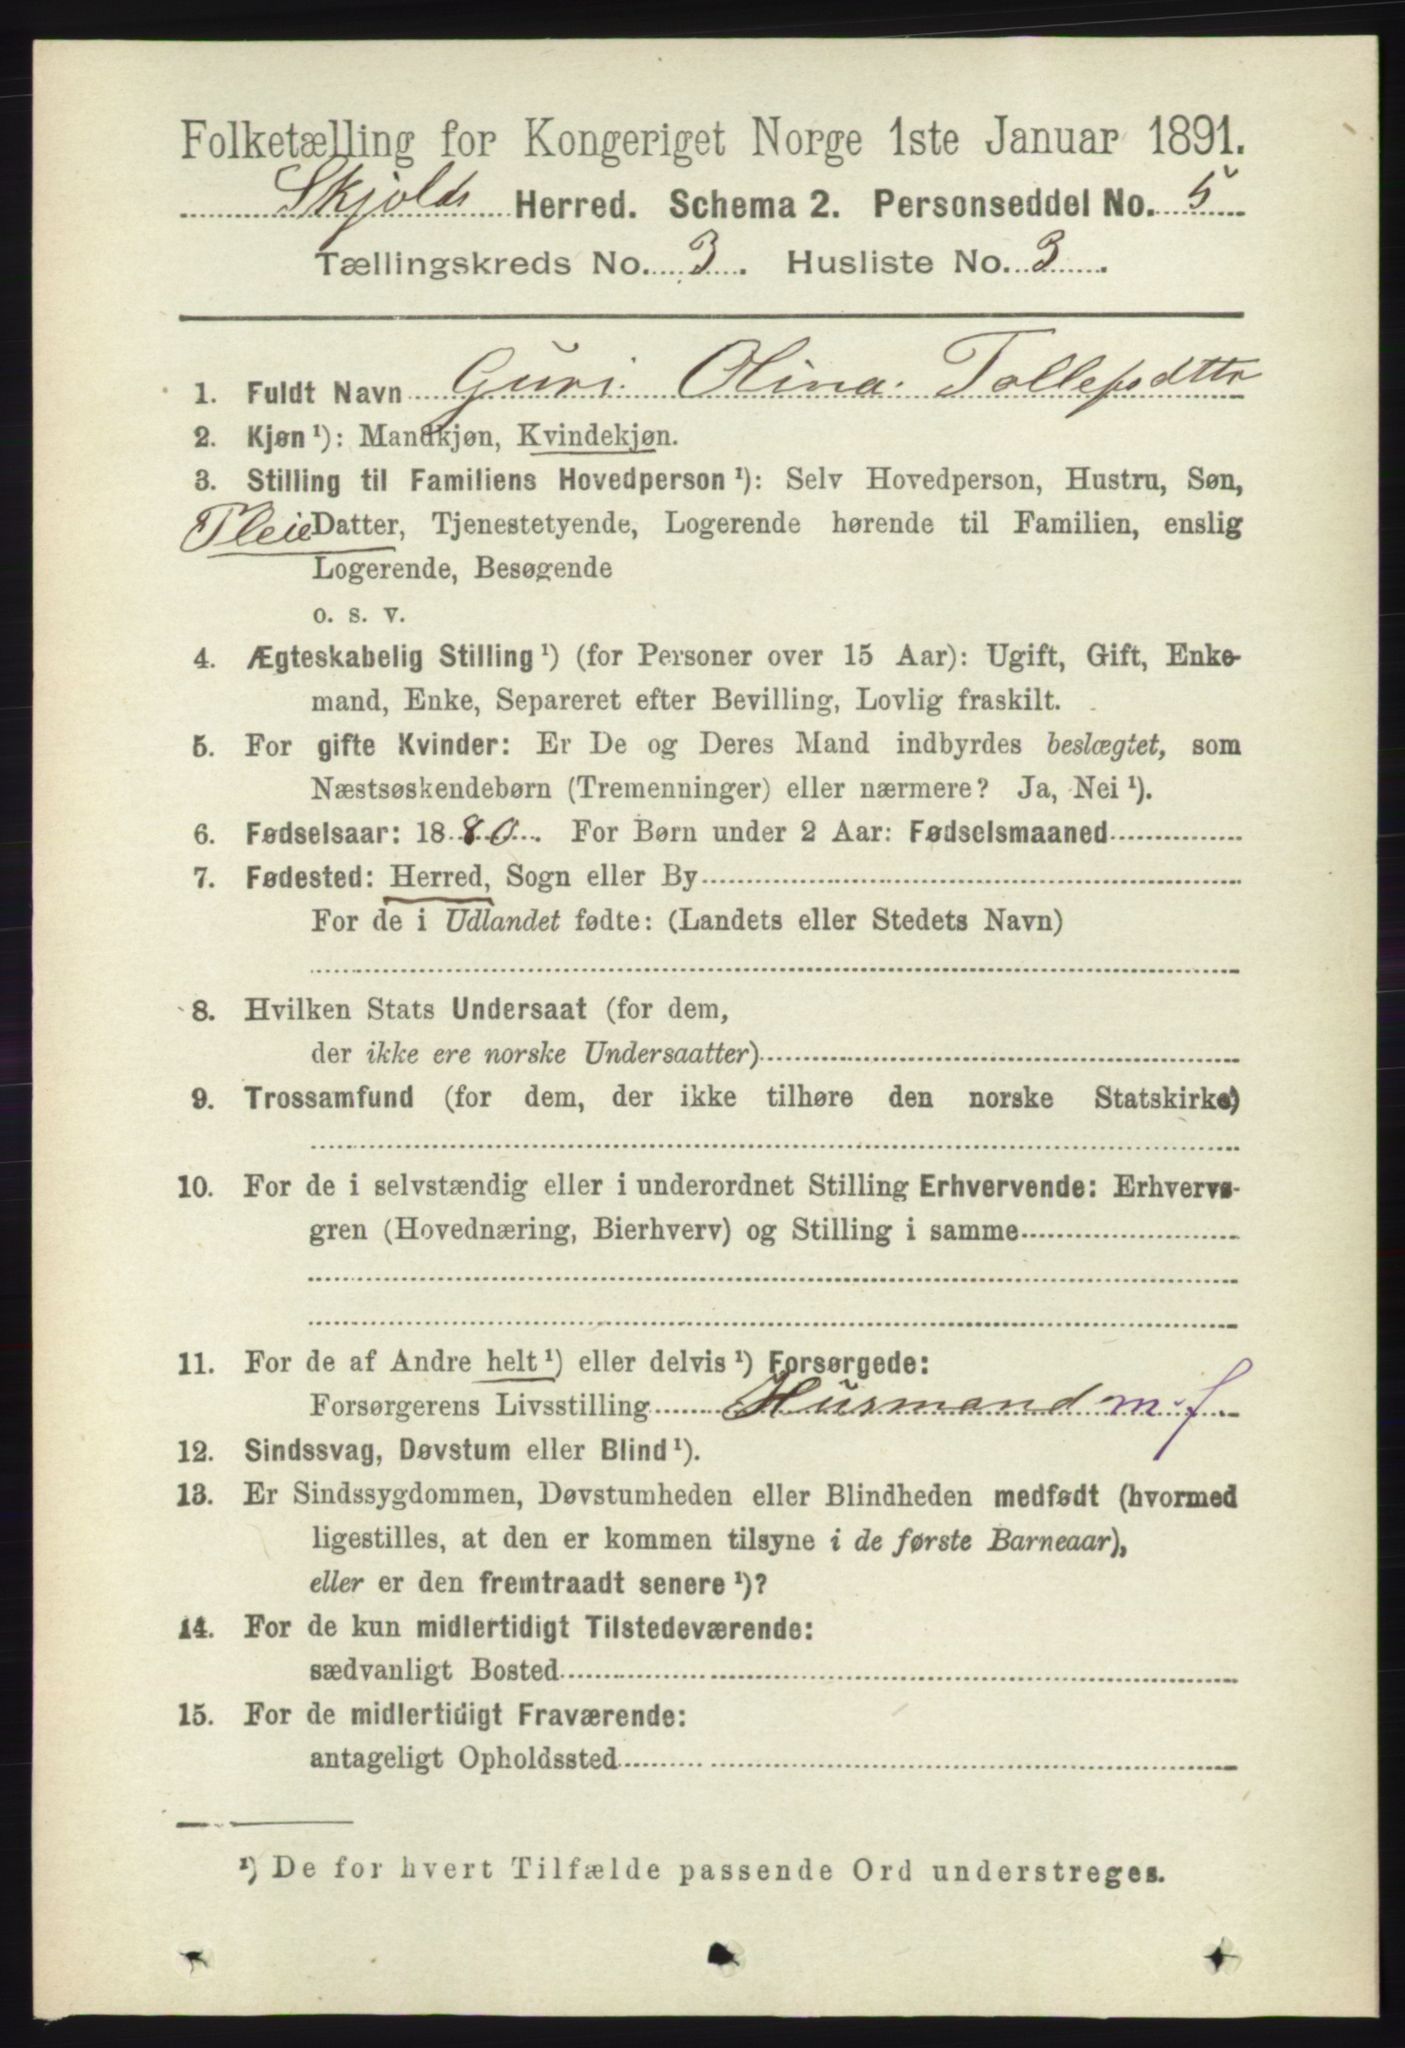 Folketælling for Kongeriget Norge 1ste Januar 1891.
Skjolds Herred. Schema 2. Personseddel No. 5
Tællingskreds No. 3. Husliste No. 3.
1. Fuldt Navn Guri Olina Tollefsdttr
2. Kjøn ¹): Mandkjøn, Kvindekjøn.
3. Stilling til Familiens Hovedperson ¹): Selv Hovedperson, Hustru, Søn,
Pleie Datter, Tjenestetyende, Logerende hørende til Familien, enslig
Logerende, Besøgende
o. s. v.
4. Ægteskabelig Stilling ¹) (for Personer over 15 Aar): Ugift, Gift, Enke-
mand, Enke, Separeret efter Bevilling, Lovlig fraskilt.
5. For gifte Kvinder: Er De og Deres Mand indbyrdes beslægtet, som
Næstsøskendebørn (Tremenninger) eller nærmere? Ja, Nei ¹).
6. Fødselsaar: 1880. For Børn under 2 Aar: Fødselsmaaned
7. Fødested: Herred, Sogn eller By
For de i Udlandet fødte: (Landets eller Stedets Navn)
8. Hvilken Stats Undersaat (for dem,
der ikke ere norske Undersaatter)
9. Trossamfund (for dem, der ikke tilhøre den norske Statskirke)
10. For de i selvstændig eller i underordnet Stilling Erhvervende: Erhvervs-
gren (Hovednæring, Bierhverv) og Stilling i samme
11. For de af Andre helt ¹) eller delvis ¹) Forsørgede:
Forsørgerens Livsstilling Husmand m. f.
12. Sindssvag, Døvstum eller Blind ¹).
13. Er Sindssygdommen, Døvstumheden eller Blindheden medfødt (hvormed
ligestilles, at den er kommen tilsyne i de første Barneaar),
eller er den fremtraadt senere ¹)?
14. For de kun midlertidigt Tilstedeværende:
sædvanligt Bosted
15. For de midlertidigt Fraværende:
antageligt Opholdssted
¹) De for hvert Tilfælde passende Ord understreges.